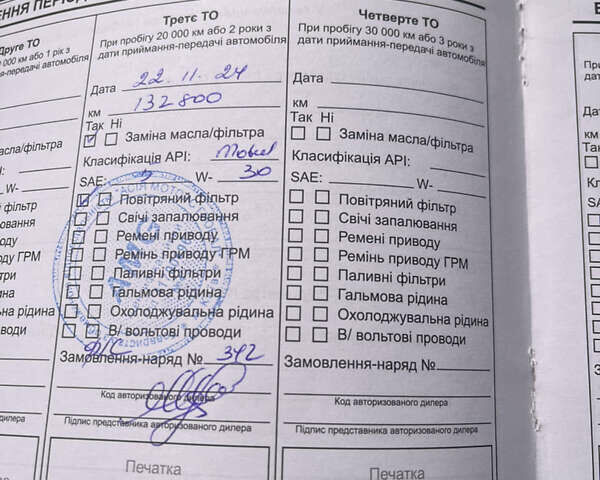 ЕННЯ ПЕРІОД
Друге ТО
км або 1 рік з
автомобіля
масла/фільтра
W-
фільтр
Третє ТО
При пробігу 20 000 км або 2 роки з
дати приймання-передачі автомобіля
Дата 22.11.24
км 132800
Так Ні
Заміна масла/фільтра
Класифікація API:
SAE: W- 30
Повітряний фільтр
Свічі запалювання
Ремені приводу
Ремінь приводу ГРМ
Паливні фільтри
Гальмова рідина
Охолоджувальна рідина
В/ вольтові проводи
Замовлення-наряд № 342
Код авторизованого дилера
Підпис представника авторизованого дилера
Печатка
Четверте ТО
При пробігу 30 000 км або 3 роки з
дати приймання-передачі автомобіля
Дата
км
Так Ні
Заміна масла/фільтра
Класифікація API:
SAE: W-
Повітряний фільтр
Свічі запалювання
Ремені приводу
Ремінь приводу ГРМ
Паливні фільтри
Гальмова рідина
Охолоджувальна рідина
В/ вольтові проводи
Замовлення-наряд №
Код авторизованого дилера
Підпис представника авторизованого дилера
Печатка